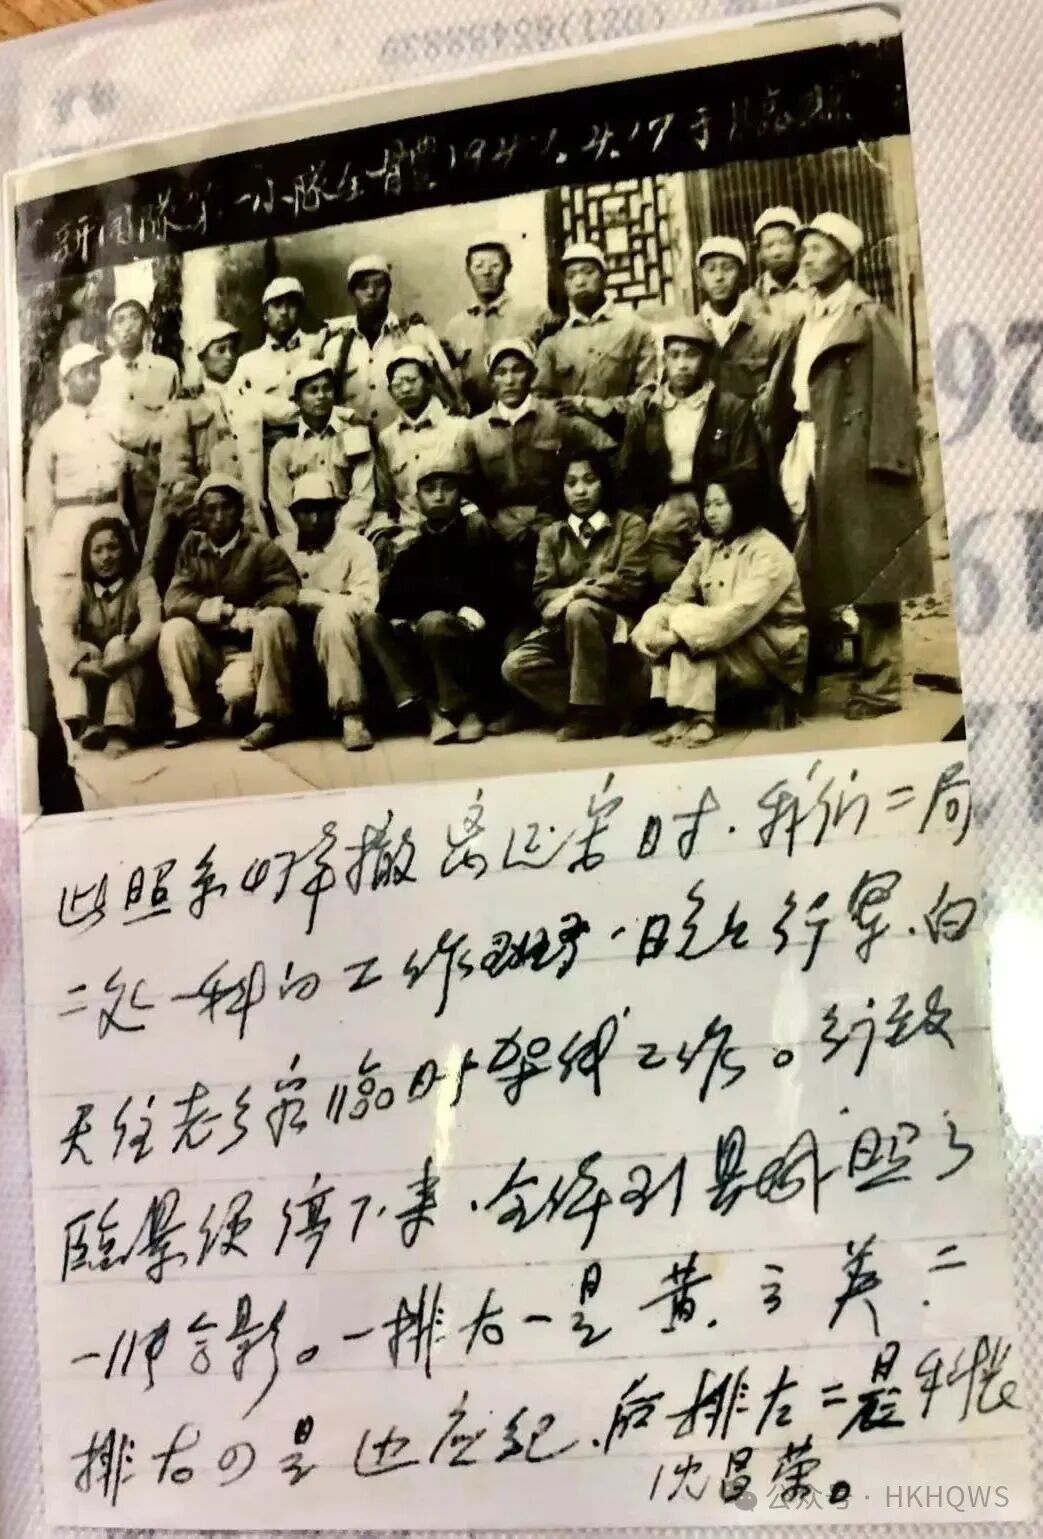 新闻队第一小队全体1947.4.17于临县
此照系47年撤离延安时.我们二局
二处一科的工作班.日晚上行军.白
天住老乡家临时架线工作。行致
臨县便停下来.全体到县城照了
一张合影。一排右一是黄立英.二
排右四是边应纪.后排左二是科长
沈昌荣。
公众号·HKHQWS